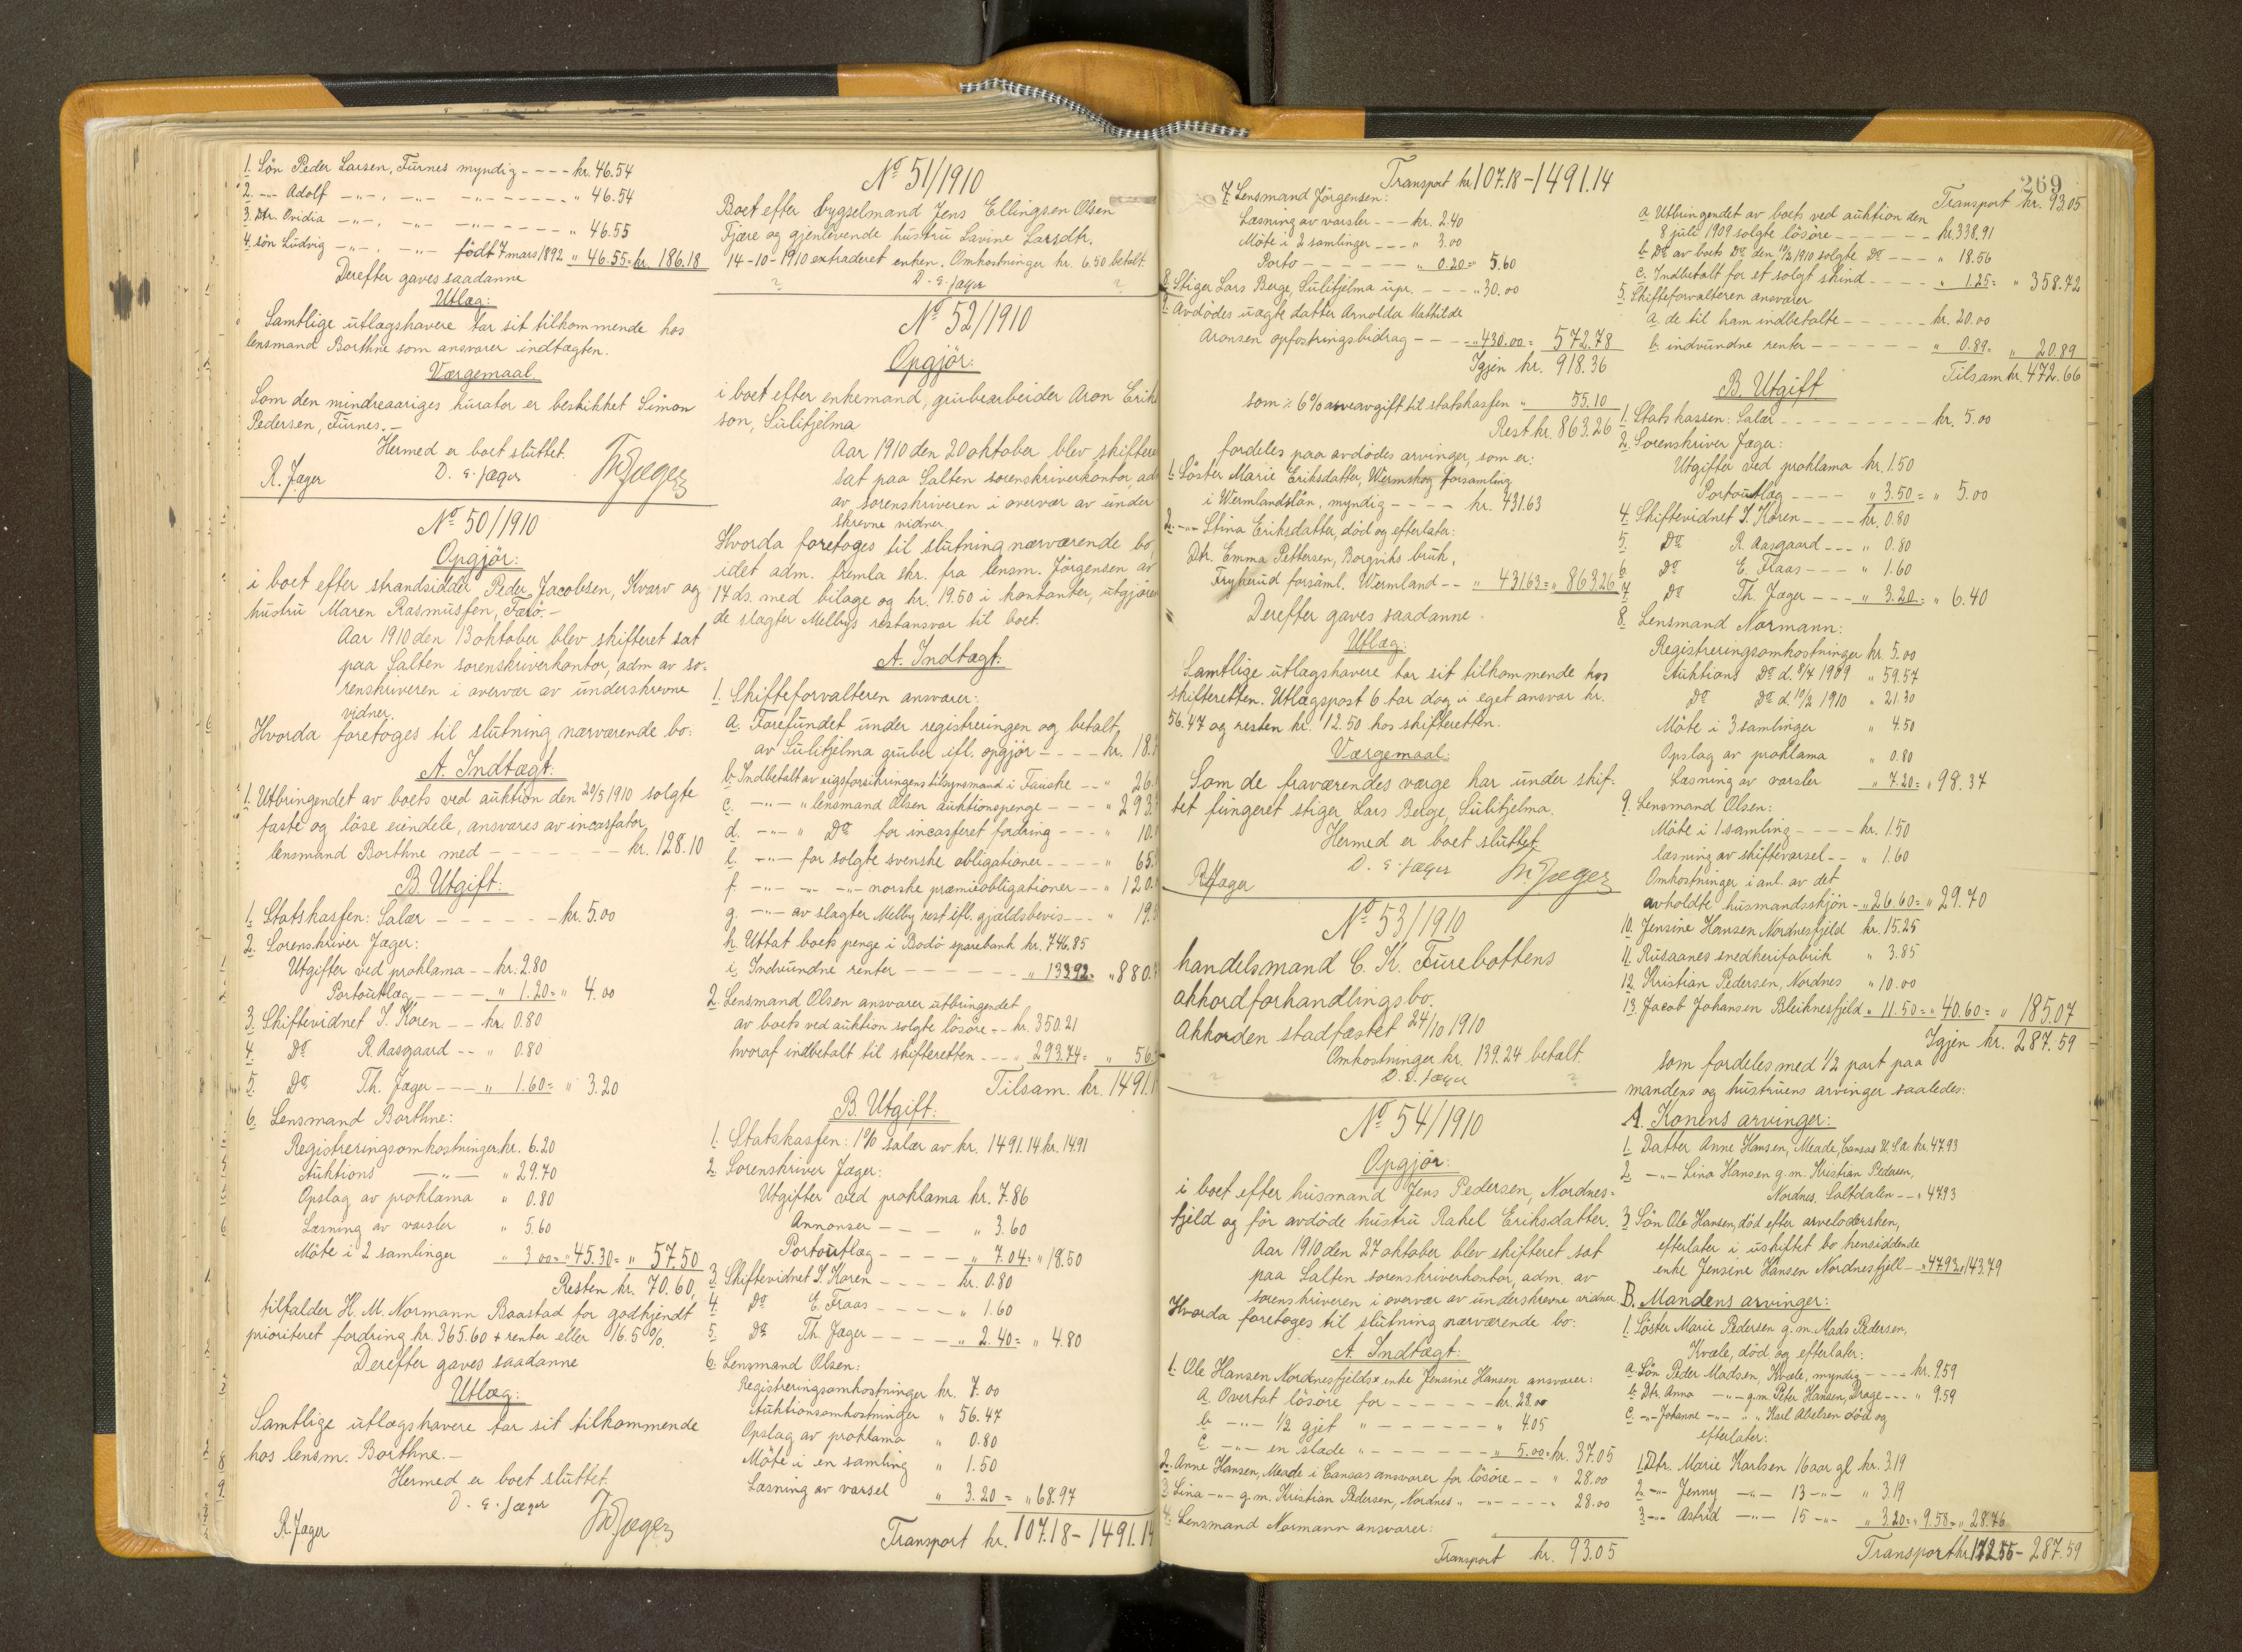 1. Sön Peder Larsen, Furnes myndig - - - - kr. 46.54
2. -"- Adolf -"- , -"- -"- - - - - - " 46.54
3. Dtr. Ovidia -"- , -"- -"- - - - - - " 46.55
4. sön Ludvig -"- , -"- födt 7 mars 1892 " 46.55 = kr. 186.18
Derefter gaves saadanne
Utlæg:
Samtlige utlægshavere tar sit tilkommende hos
lensmand Borthne som ansvarer indtægten.
Værgemaal.
Som den mindreaariges kurator er beskikket Simon
Pedersen, Furnes.-
Hermed er boet sluttet.
R. Jæger D. E. Jæger
No 50/1910
Opgjör:
i boet efter strandsidder Peder Jacobsen, Kvarv og
hustru Maren Rasmussen, Færö.-
Aar 1910 den 13 oktober blev skifteret sat
paa Salten sorenskriverkontor, adm av so-
renskriveren i overvær av underskrevne
vidner.
Hvorda foretoges til slutning nærværende bo:
A. Indtægt:
1. Utbringendet av boets ved auktion den 20/5 1910 solgte
faste og löse eiendele, ansvares av incassator
lensmand Borthne med - - - - - - kr. 128.10
B. Utgift:
1. Statskassen: Salær - - - - - - kr. 5.00
2. Sorenskriver Jæger:
Utgifter ved proklama - - kr. 2.80
Portoutlæg - - - - " 1.20 = " 4.00
3. Skiftevidnet I. Koren - - kr. 0.80
4. Do R. Aasgaard - - " 0.80
5. Do Th. Jæger - - - " 1.60 = " 3.20
6. Lensmand Borthne:
Registreringsomkostninger kr. 6.20
Auktions -"- " 29.70
Opslag av proklama " 0.80
Læsning av varsler " 5.60
Möte i 2 samlinger " 3.00 = " 45.30 = " 57.50
Resten kr. 70.60,
tilfalder H. M. Normann Baastad for godkjendt
prioriteret fordring kr. 365.60 + renter eller 16.5 %.
Derefter gaves saadanne
Utlæg:
Samtlige utlægshavere tar sit tilkommende
hos lensm. Borthne.-
Hermed er boet sluttet.
D. E. Jæger
R. Jæger
No 51/1910
Boet efter bygselmand Jens Ellingsen Olsen
Fjære og gjenlevende hustru Lavine Larsdtr.
14-10-1910 extraderet enken. Omkostninger kr. 6.50 betalt.
D. E. Jæger
No 52/1910
Opgjör:
i boet efter enkemand, grubearbeider Aron Erik
son, Sulitjelma
Aar 1910 den 20 oktober blev skiftere
sat paa Salten sorenskriverkontor, ad
av sorenskriveren i overvær av under
skrevne vidner.
Hvorda foretoges til slutning nærværende bo,
idet adm. fremla skr. fra lensm. Jörgensen av
17 ds. med bilage og kr. 19.50 i kontanter, utgjören
de slagter Melbys restansvar til boet.
A. Indtægt:
1. Skifteforvalteren ansvarer:
a. Forefundet under registreringen og betalt
av Sulitjelma gruber ifl. opgjör - - - kr. 18.
b. Indbetalt av rigsforsikringens tilsynsmand i Fauske - - " 26.
c. -"- " lensmand Olsen auktionspenge - - - " 293.
d. -"- " Do for incasseret fordring - - - " 10.
e. -"- for solgte svenske obligationer - - - - " 65.
f. -"- -"- -"- norske præmieobligationer - - " 120.
g. -"- av slagter Melby rest ifl. gjældsbevis - - - " 19.
h. Uttat boets penge i Bodö sparebank kr. 746.85
i. Indvundne renter - - - - - - " 133.92 = " 880.
2. Lensmand Olsen ansvarer utbringendet
av boets ved auktion solgte lösöre - - kr. 350.21
hvoraf indbetalt til skifteretten - - - " 293.74 = " 56.
Tilsam. kr. 1491.1
B. Utgift:
1. Statskassen: 1% salær av kr. 1491.14 kr. 14.91
2. Sorenskriver Jæger:
Utgifter ved proklama kr. 7.86
Annonser - - - " 3.60
Portoutlæg - - - - " 7.04 = " 18.50
3. Skiftevidnet I. Koren - - - - kr. 0.80
4. Do E. Fraas - - - - " 1.60
5. Do Th. Jæger - - - - " 2.40 = " 4.80
6. Lensmand Olsen:
Registreringsomkostninger kr. 7.00
Auktionsomkostninger " 56.47
Opslag av proklama " 0.80
Möte i en samling " 1.50
Læsning av varsel " 3.20 = " 68.97
Transport kr. 107.18 - 1491.14
Transport kr. 107.18 - 1491.14
7. Lensmand Jörgensen:
Læsning av varsler - - - kr. 2.40
Möte i 2 samlinger - - - " 3.00
Porto - - - - - - " 0.20 = " 5.60
8. Stiger Lars Berge, Sulitjelma upr. - - - - " 30.00
9. Avdödes uægte datter Arnolda Mathilde
Aronsen opfostringsbidrag - - - - " 430.00 = 572.78
Igjen kr. 918.36
som ÷ 6% arveavgift til statskassen " 55.10
Rest kr. 863.26
fordeles paa avdödes arvinger, som er:
1. Söster Marie Eriksdatter, Wermskog forsamling
i Wermlandslän, myndig - - - - kr. 431.63
2. -"- Stina Eriksdatter, död og efterlater:
Dtr. Emma Pettersen, Borgviks bruk,
Frykerud forsaml. Wermland - - " 431.63 = " 863.26
Derefter gaves saadanne
Utlæg:
Samtlige utlægshavere tar sit tilkommende hos
skifteretten. Utlægspost 6 tar dog i eget ansvar kr.
56.47 og resten kr. 12.50 hos skifteretten.
Værgemaal:
Som de fraværendes værge har under skif-
tet fungeret stiger Lars Berge, Sulitjelma.
Hermed er boet sluttet
D. E. Jæger
R. Jæger
No 53/1910
handelsmand C. K. Furebottens
akkordforhandlingsbo.
Akkorden stadfæstet 24/10 1910
Omkostninger kr. 139.24 betalt.
D. E. Jæger
No 54/1910
Opgjör:
i boet efter husmand Jens Pedersen, Nordnes-
fjeld og för avdöde hustru Rakel Eriksdatter.
Aar 1910 den 27 oktober blev skifteret sat
paa Salten sorenskriverkontor, adm. av
sorenskriveren i overvær av underskrevne vidner.
Hvorda foretoges til slutning nærværende bo:
A. Indtægt:
1. Ole Hansen Nordnesfjelds enke Jensine Hansen ansvarer:
a. Overtat lösöre for - - - - - - kr. 28.00
b. -"- 1/2 gjet " - - - - - - " 4.05
c. -"- en slæde " - - - - - - " 5.00 = kr. 37.05
2. Anne Hansen, Meade i Cansas ansvarer for lösöre - - " 28.00
3. Lina -"- g.m. Kristian Pedersen, Nordnes " -"- - - - " 28.00
4. Lensmand Normann ansvarer:
Transport kr. 93.05
269
Transport kr. 93.05
a. Utbringendet av boets ved auktion den
8 juli 1909 solgte lösöre - - - - - - kr. 338.91
b. Do av boets Do den 10/2 1910 solgte Do - - - " 18.56
c. Indbetalt for et solgt skind - - - - " 1.25 = " 358.72
5. Skifteforvalteren ansvarer
a. de til ham indbetalte - - - - - - kr. 20.00
b. indvundne renter - - - - - - " 0.89 = " 20.89
Tilsam kr. 472.66
B. Utgift
1. Statskassen: Salær - - - - - - - - kr. 5.00
2. Sorenskriver Jæger:
Utgifter ved proklama kr. 1.50
Portoutlæg - - - - " 3.50 = " 5.00
4. Skiftevidnet I. Koren - - - - kr. 0.80
5. Do R. Aasgaard - - - " 0.80
6. Do E. Fraas - - - " 1.60
7. Do Th. Jæger - - - " 3.20 = " 6.40
8. Lensmand Normann:
Registreringsomkostninger kr. 5.00
Auktions Do d. 8/7 1909 " 59.57
Do Do d. 10/2 1910 " 21.30
Möte i 3 samlinger " 4.50
Opslag av proklama " 0.80
Læsning av varsler " 7.20 = " 98.37
9. Lensmand Olsen:
Möte i 1 samling - - - - kr. 1.50
læsning av skiftevarsel - - " 1.60
Omkostninger i anl. av det
avholdte husmandsskjön - " 26.60 = " 29.70
10. Jensine Hansen Nordnesfjeld kr. 15.25
11. Rusaanes snedkerifabrik " 3.85
12. Kristian Pedersen, Nordnes " 10.00
13. Jacob Johansen Bleiknesfjeld " 11.50 = " 40.60 = " 185.07
Igjen kr. 287.59
som fordeles med 1/2 part paa
mandens og hustruens arvinger saaledes:
A. Konens arvinger:
1. Datter Anne Hansen, Meade, Cansas U.S.a. kr. 47.93
2. -"- Lina Hansen g.m. Kristian Pedersen,
Nordnes. Saltdalen - - " 47.93
3. Sön Ole Hansen, död efter arveladersken,
efterlater i uskiftet bo hensiddende
enke Jensine Hansen Nordnesfjell - " 47.93 = " 143.79
B. Mandens arvinger:
1. Söster Marie Pedersen g.m. Mads Pedersen,
Kvæle, död og efterlater:
a. Sön Peder Madsen, Kvæle, myndig - - - - kr. 9.59
b. Dtr. Anna -"- g.m. Peter Hansen, Drage - - - " 9.59
c. -"- Johanne -"- " " Karl Abelsen död og
efterlater:
1. Dtr. Marie Karlsen 16 aar gl kr. 3.19
2. -"- Jenny -"- 13 -"- " 3.19
3. -"- Astrid -"- 15 -"- " 3.20 = " 9.58 = " 28.76
Transport kr. 172.55 - 287.59